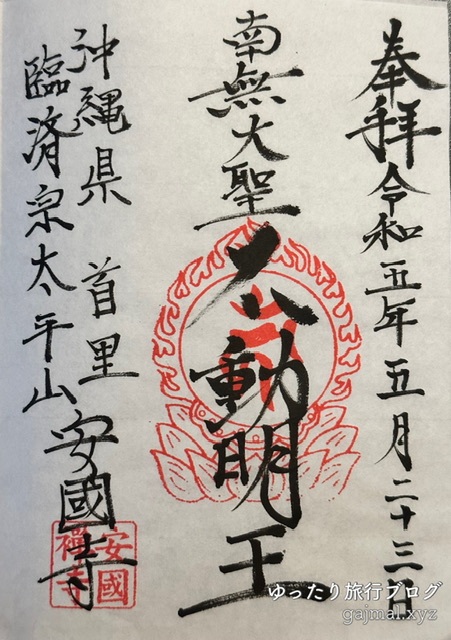 奉拝 令和五年五月二十三日
南無大聖不動明王
沖縄県 首里
臨済宗太平山安國寺
安國
禪寺
ゆったり旅行ブログ
gajmal.xyz